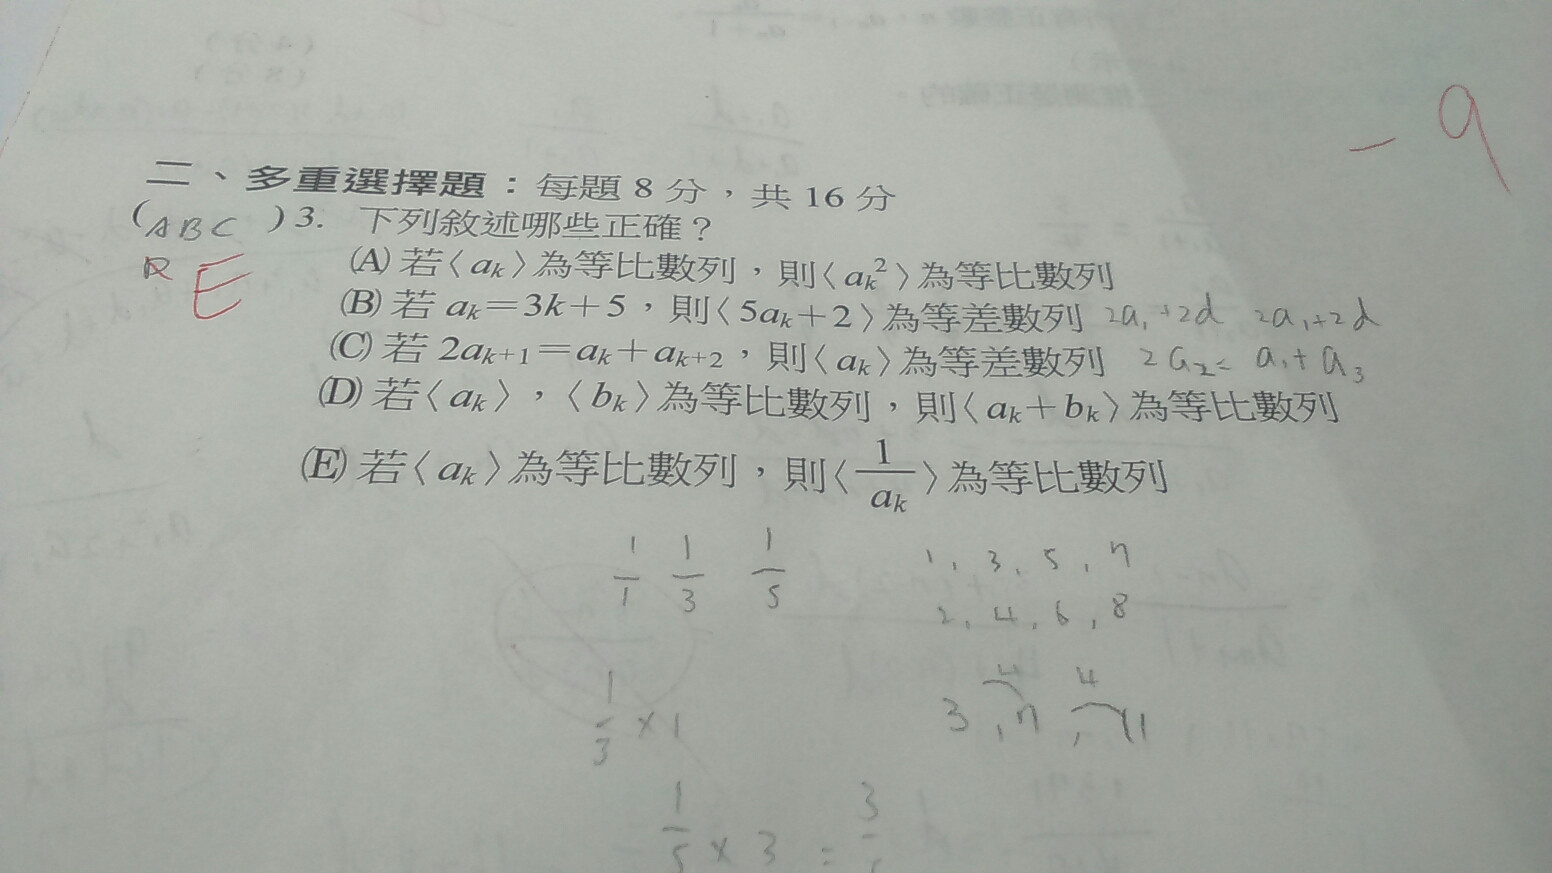 -9
二、多重選擇題：每題 8 分，共 16 分
(ABC )3. 下列敘述哪些正確？
E
(A) 若〈 aₖ 〉為等比數列，則〈 aₖ² 〉為等比數列
(B) 若 aₖ＝3k＋5，則〈 5aₖ＋2 〉為等差數列 2a₁+2d 2a₁+2d
(C) 若 2aₖ₊₁＝aₖ＋aₖ₊₂，則〈 aₖ 〉為等差數列 2a₂= a₁+a₃
(D) 若〈 aₖ 〉，〈 bₖ 〉為等比數列，則〈 aₖ＋bₖ 〉為等比數列
(E) 若〈 aₖ 〉為等比數列，則〈 1/aₖ 〉為等比數列
1/1 1/3 1/5
1, 3, 5, 7
2, 4, 6, 8
4 4
3, 7, 11
1/3 ×1
1/5 ×3 = 3/